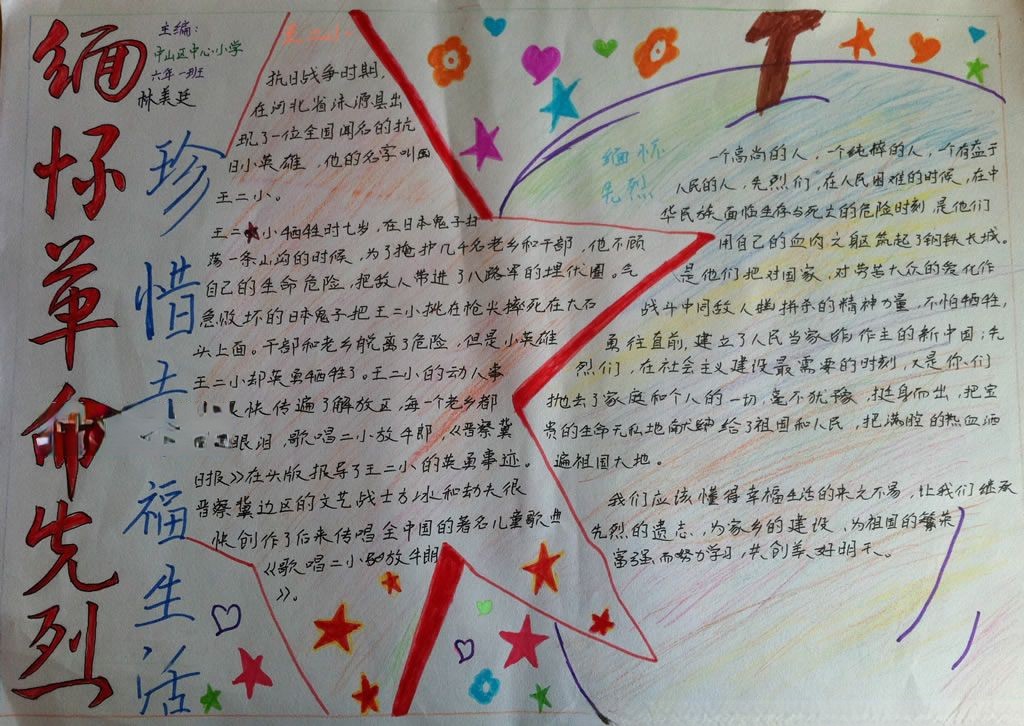 缅怀革命先烈
主编:
中山区中心小学
六年一班
林美廷
珍惜幸福生活
抗日战争时期,
在河北省涞源县出
现了一位全国闻名的抗
日小英雄,他的名字叫
王二小。
王二小牺牲时七岁,在日本鬼子扫
荡一条山沟的时候,为了掩护几千名老乡和干部,他不顾
自己的生命危险,把敌人带进了八路军的埋伏圈。气
急败坏的日本鬼子把王二小挑在枪尖摔死在大石
头上面。干部和老乡脱离了危险,但是小英雄
王二小却英勇牺牲了。王二小的动人事
快传遍了解放区,每一个老乡都
眼泪,歌唱二小放牛郎,《晋察冀
日报》在头版报导了王二小的英勇事迹。
晋察冀边区的文艺战士方冰和劫夫很
快创作了后来传唱全中国的著名儿童歌曲
《歌唱二小放牛郎
》。
缅怀
先烈
一个高尚的人,一个纯粹的人,一个有益于
人民的人,先烈们,在人民困难的时候,在中
华民族面临生存与死亡的危险时刻是他们
用自己的血肉之躯筑起了钢铁长城。
是他们把对国家,对劳苦大众的爱化作
战斗中同敌人拼杀的精神力量,不怕牺牲,
勇往直前,建立了人民当家作主的新中国;先
烈们,在社会主义建设最需要的时刻,又是你们
抛去了家庭和个人的一切,毫不犹豫,挺身而出,把宝
贵的生命无私地献给了祖国和人民,把满腔的热血洒
遍祖国大地。
我们应该懂得幸福生活的来之不易,让我们继承
先烈的遗志,为家乡的建设、为祖国的繁荣
富强而努力学习,共创美好明天。